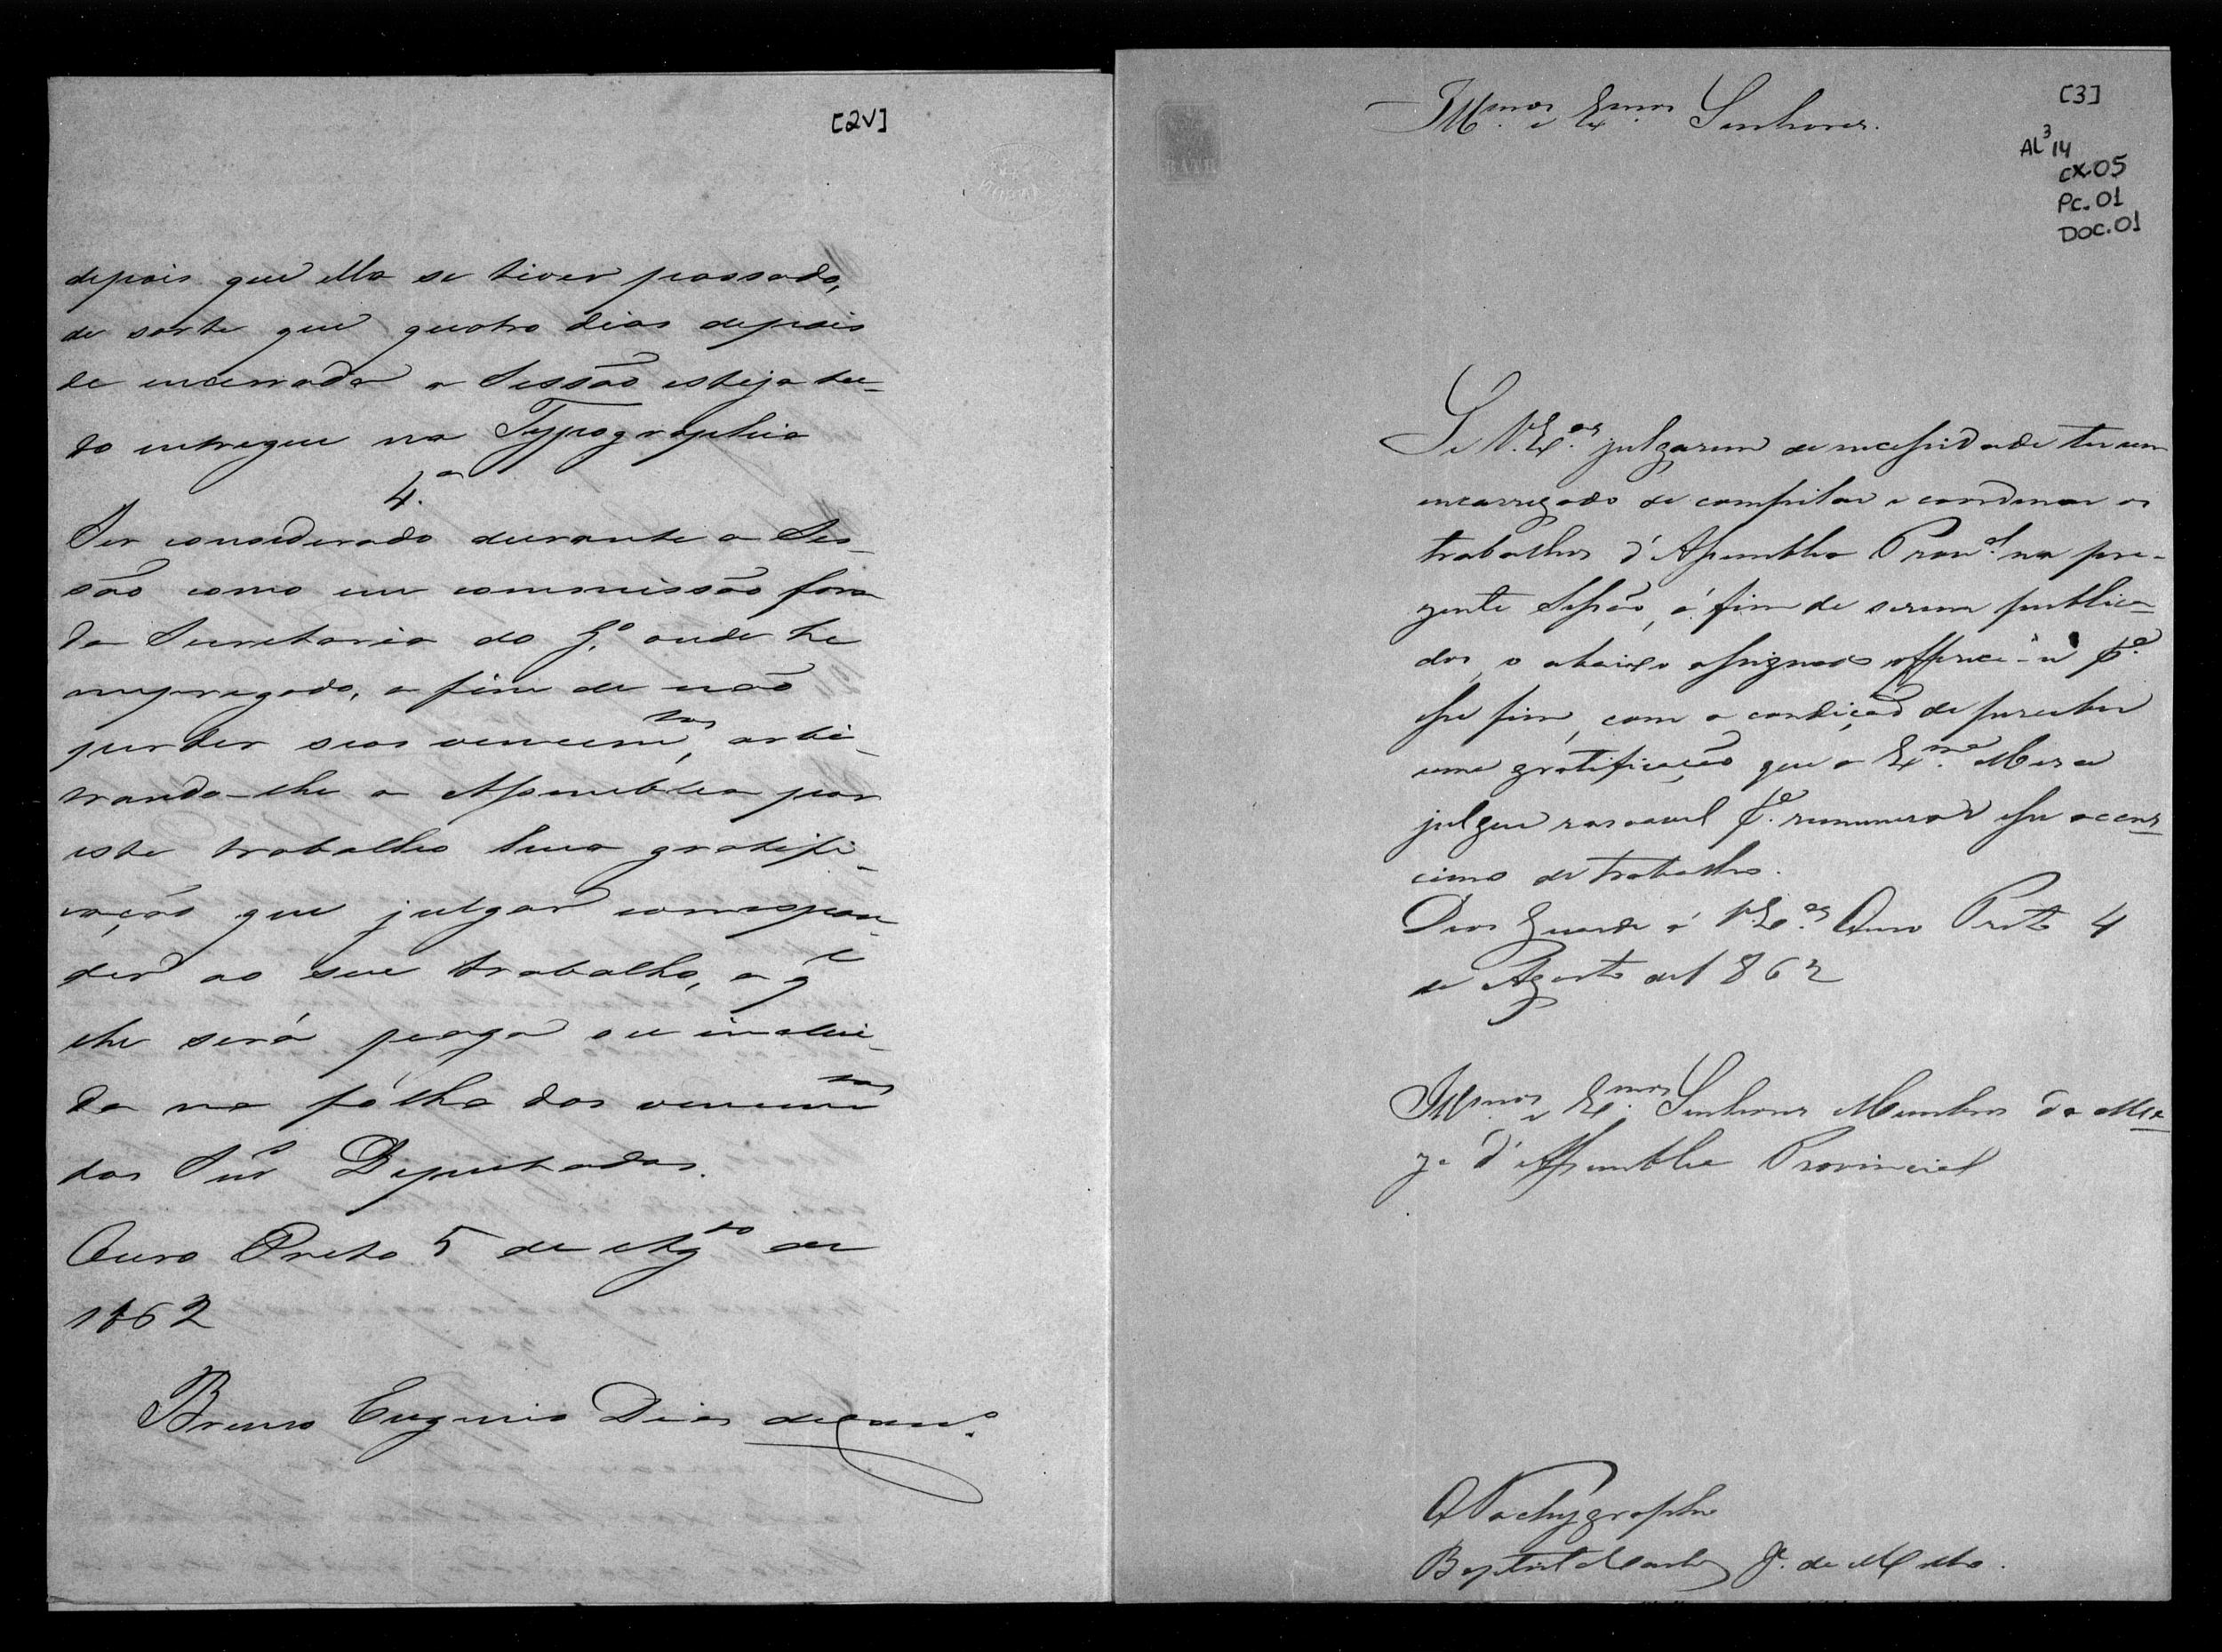 [2V]
depois que ella se tiver passado,
de sorte que quatro dias depois
de encerrada a Sessão esteja tu-
do entregue na Typographia
4.a
Ser considerado durante a Ses-
são como em commissão fora
da Secretaria do G.o onde he
empregado, a fim de não
perder seos vencim.tos, arbi-
trando-lhe a Assemblea por
este trabalho huma gratifi-
cação que julgar correspon-
der ao seu trabalho, a q.l
lhe será paga ou inclui-
da na fôlha dos vencim.tos
dos Snr.s Deputados.
Ouro Preto 5 de Ag.to de
1862
Bruno Eugenio Dias de
[3]
AL3 14
CX.05
Pc.01
DOC.01
BATH
Ill.mos e Ex.mos Senhores.
Se V.Ex.as julgarem de necessidade ter um
encarregado de compilar e coordenar os
trabalhos d'Assemblea Prov.al na pre-
zente Sessão, á fim de serem publica-
dos, o abaixo assignado offerece-se p.a
esse fim, com a condição de perceber
uma gratificação que a Ex.ma Mesa
julgue rasoavel p.a remunerar esse acres-
cimo de trabalho.
Deos Guarde á V.Ex.as Ouro Preto 4
de Agosto de 1862
Ill.mos e Ex.mos Senhores Membros da Me-
za d'Assemblea Provincial
O Tachygrapho
Baptist J.e de Mello.